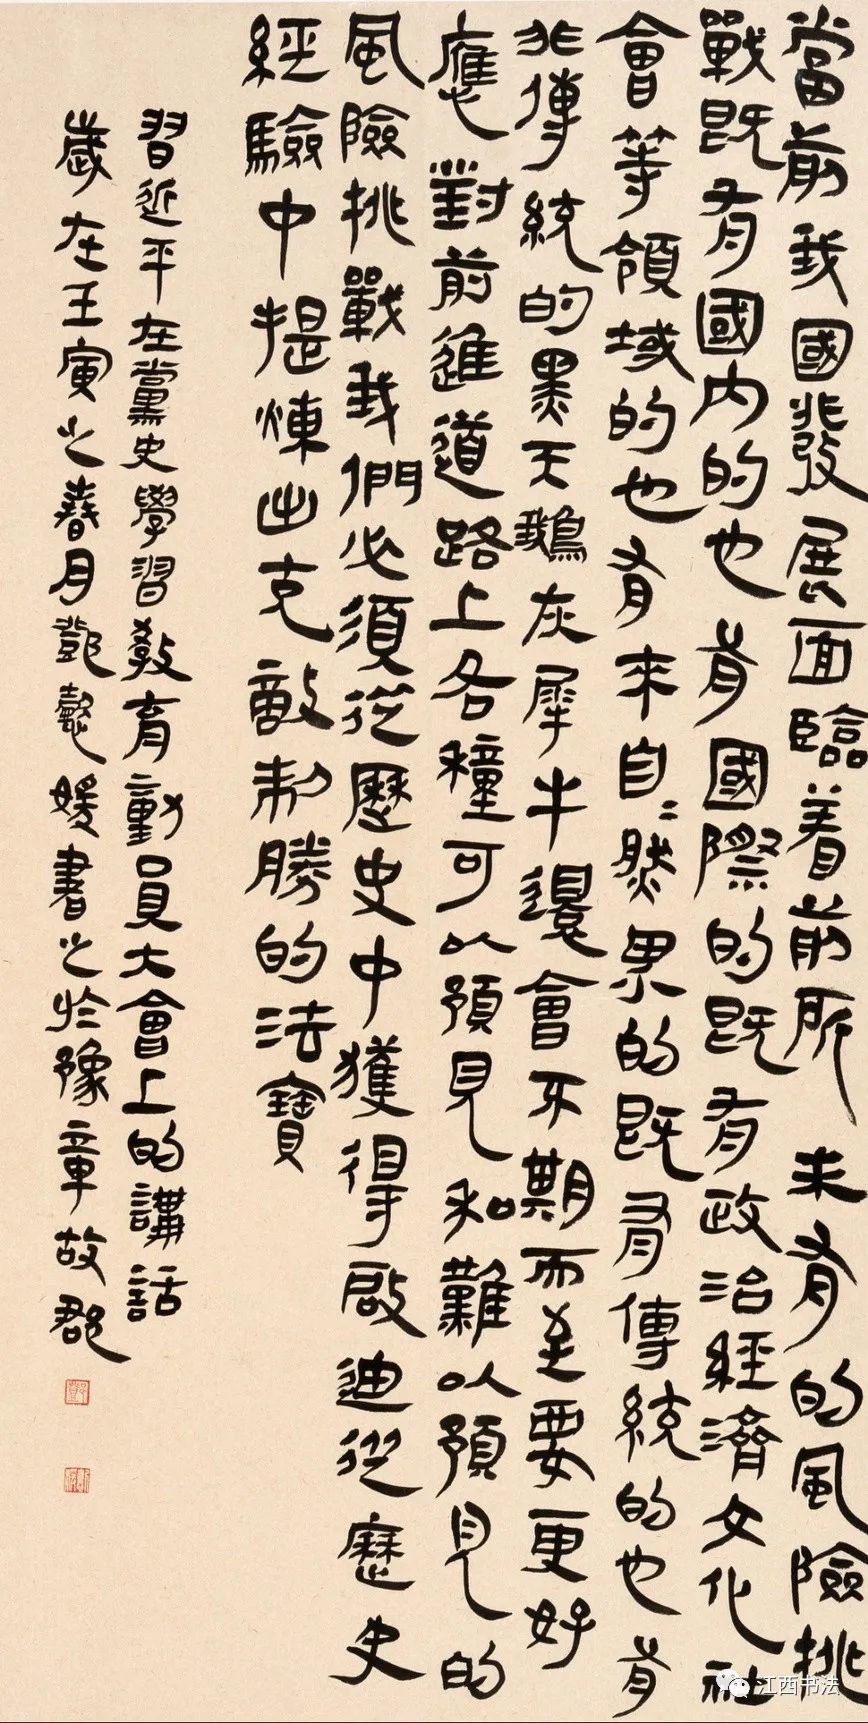 當前我國發展面臨着前所未有的風險挑
戰既有國內的也有國際的既有政治經濟文化社
會等領域的也有來自〻然界的既有傳統的也有
非傳統的黑天鵝灰犀牛還會不期而至要更好
應對前進道路上各種可以預見和難以預見的
風險挑戰我們必須從歷史中獲得啟迪從歷史
經驗中提煉出克敵制勝的法寶
習近平在黨史學習教育動員大會上的講話
歲在壬寅之春月鄧懿媛書之於豫章故郡
江西书法